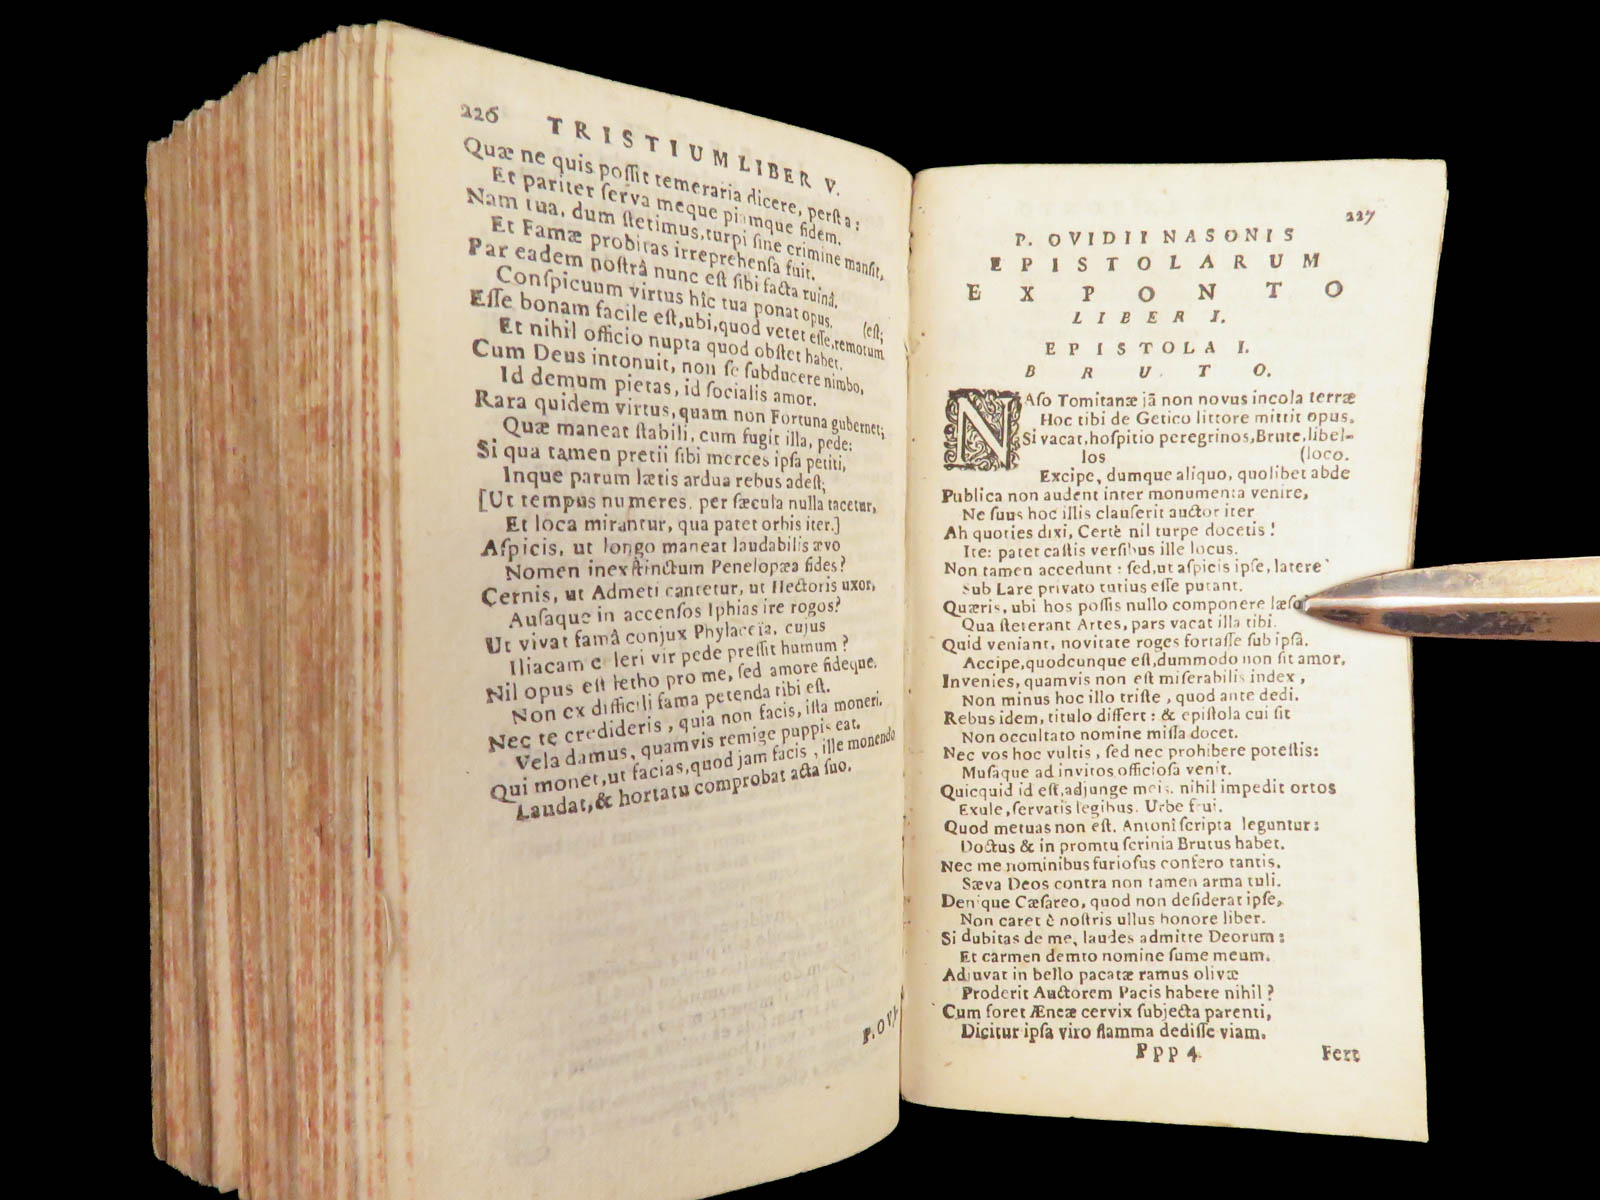 226 TRISTIUM LIBER V.
Quæ ne quis poſſit temeraria dicere, perſta:
Et pariter ſerva meque piumque fidem.
Nam tua, dum ſtetimus, turpi ſine crimine manſit,
Et Famæ probitas irreprehenſa fuit.
Par eadem noſtrâ nunc eſt ſibi facta ruinâ.
Conſpicuum virtus hîc tua ponat opus. (eſt;
Eſſe bonam facile eſt, ubi, quod vetet eſſe, remotum
Et nihil officio nupta quod obſtet habet.
Cum Deus intonuit, non ſe ſubducere nimbo,
Id demum pietas, id ſocialis amor.
Rara quidem virtus, quam non Fortuna gubernet;
Quæ maneat ſtabili, cum fugit illa, pede:
Si qua tamen pretii ſibi merces ipſa petiti,
Inque parum lætis ardua rebus adeſt;
[Ut tempus numeres, per ſæcula nulla tacetur,
Et loca mirantur, qua patet orbis iter.]
Aſpicis, ut longo maneat laudabilis ævo
Nomen inexſtinctum Penelopæa fides?
Cernis, ut Admeti cantetur, ut Hectoris uxor,
Auſaque in accenſos Iphias ire rogos?
Ut vivat famâ conjux Phylaceïa, cujus
Iliacam celeri vir pede preſſit humum?
Nil opus eſt letho pro me, ſed amore fideque.
Non ex difficili fama petenda tibi eſt.
Nec te credideris, quia non facis, iſta moneri.
Vela damus, quamvis remige puppis eat.
Qui monet, ut facias, quod jam facis, ille monendo
Laudat, & hortatu comprobat acta ſuo.
P. OVI
227
P. OVIDII NASONIS
EPISTOLARUM
EX PONTO
LIBER I.
EPISTOLA I.
BRUTO.
NAſo Tomitanæ jã non novus incola terræ
Hoc tibi de Getico littore mittit opus.
Si vacat, hoſpitio peregrinos, Brute, libel-
los (loco.
Excipe, dumque aliquo, quolibet abde
Publica non audent inter monumenta venire,
Ne ſuus hoc illis clauſerit auctor iter
Ah quoties dixi, Certè nil turpe docetis!
Ite: patet caſtis verſibus ille locus.
Non tamen accedunt: ſed, ut aſpicis ipſe, latere
Sub Lare privato tutius eſſe putant.
Quæris, ubi hos poſſis nullo componere læſo
Qua ſteterant Artes, pars vacat illa tibi.
Quid veniant, novitate roges fortaſſe ſub ipſâ.
Accipe, quodcunque eſt, dummodo non ſit amor,
Invenies, quamvis non eſt miſerabilis index,
Non minus hoc illo triſte, quod ante dedi.
Rebus idem, titulo differt: & epiſtola cui ſit
Non occultato nomine miſſa docet.
Nec vos hoc vultis, ſed nec prohibere poteſtis:
Muſaque ad invitos officioſa venit.
Quicquid id eſt, adjunge meis. nihil impedit ortos
Exule, ſervatis legibus, Urbe frui.
Quod metuas non eſt. Antonî ſcripta leguntur:
Doctus & in promtu ſcrinia Brutus habet.
Nec me nominibus furioſus confero tantis.
Sæva Deos contra non tamen arma tuli.
Denique Cæſareo, quod non deſiderat ipſe,
Non caret è noſtris ullus honore liber.
Si dubitas de me, laudes admitte Deorum:
Et carmen demto nomine ſume meum.
Adjuvat in bello pacatæ ramus olivæ
Proderit Auctorem Pacis habere nihil?
Cum foret Æneæ cervix ſubjecta parenti,
Dicitur ipſa viro flamma dediſſe viam.
Ppp 4 Fert